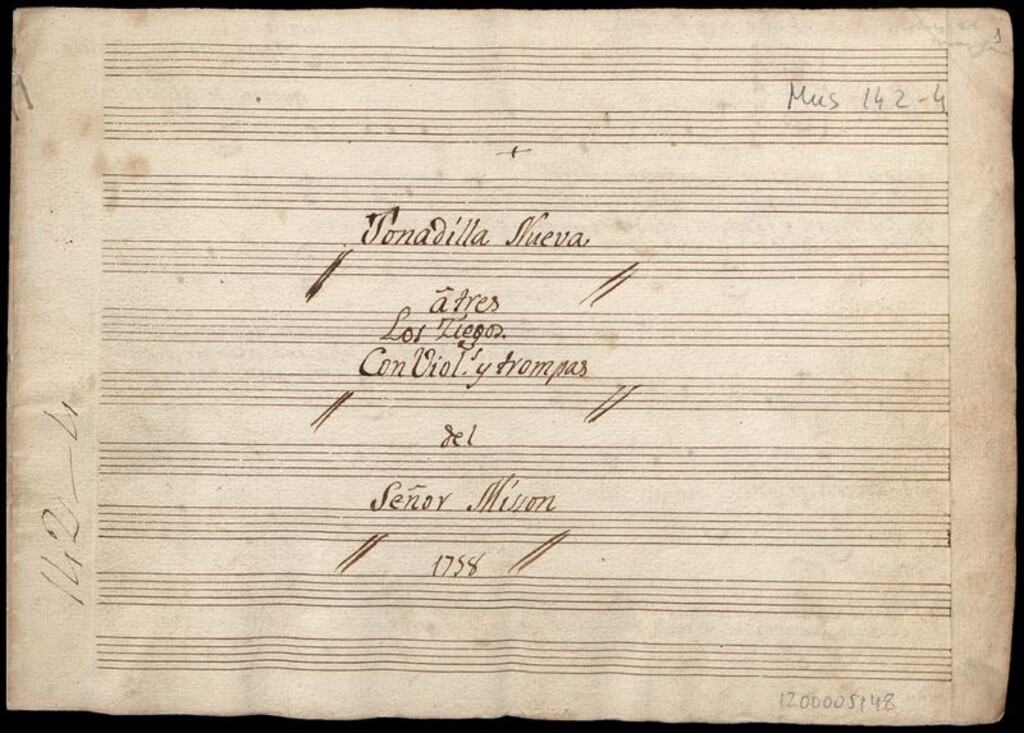 1
Mus 142-4
+
Tonadilla Nueva
â tres
Los Ziegos.
Con Viol.s y trompas
del
Señor Misson
1758
142-4
1200005148